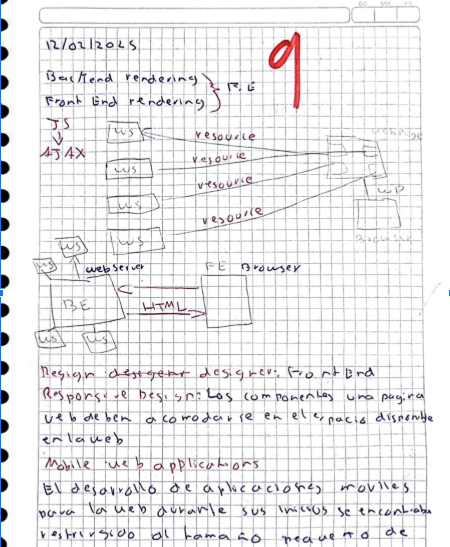 12/02/2025
9
Backend rendering
Front End rendering
F.E
JS
AJAX
WS
WS
WS
WS
resource
resource
resource
resource
webpage
WP
Browser
WS
WS
web server
FE Browser
BE
HTML
WS
WS
Design designer: Front End
Responsive Design: Los componentes una pagina
web deben acomodarse en el espacio disponible
en la web
Mobile web applications
El desarrollo de aplicaciones moviles
para la web durante sus inicios se encontraba
restringido al tamaño pequeño de